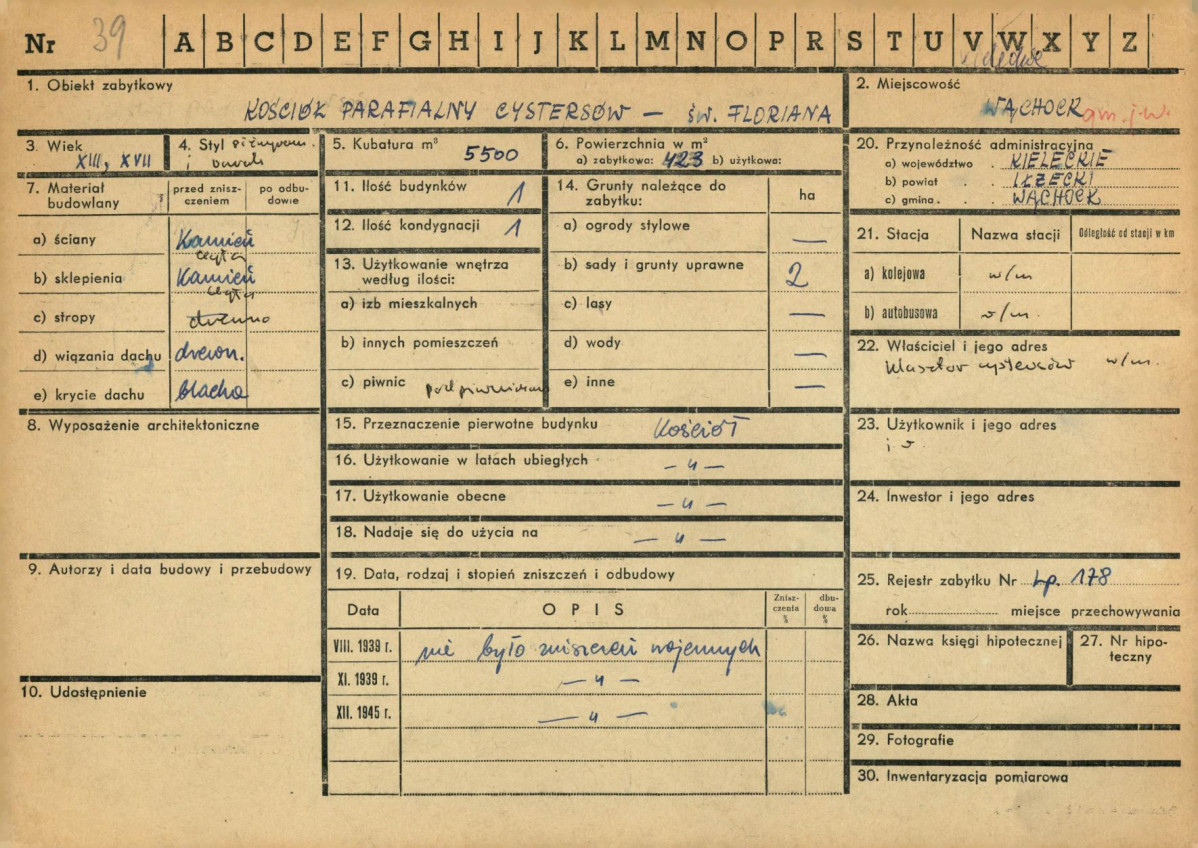 Nr 39 A B C D E F G H I J K L M N O P R S T U V W X Y Z
1. Obiekt zabytkowy
KOŚCIÓŁ PARAFIALNY CYSTERSÓW — ŚW. FLORIANA
2. Miejscowość
WĄCHOCK gm. j. w.
3. Wiek
XIII, XVII
4. Styl późnorom.
i barok
5. Kubatura m³
5500
6. Powierzchnia w m²
a) zabytkowa: 423 b) użytkowa:
7. Materiał budowlany
przed zniszczeniem
po odbudowie
a) ściany Kamień
cegła
b) sklepienia Kamień
cegła
c) stropy drewno
d) wiązania dachu drewn.
e) krycie dachu blacha
8. Wyposażenie architektoniczne
9. Autorzy i data budowy i przebudowy
10. Udostępnienie
11. Ilość budynków 1
12. Ilość kondygnacji 1
13. Użytkowanie wnętrza
według ilości:
a) izb mieszkalnych
b) innych pomieszczeń
c) piwnic podpiwniczony
14. Grunty należące do
zabytku:
ha
a) ogrody stylowe —
b) sady i grunty uprawne 2
c) lasy —
d) wody —
e) inne —
15. Przeznaczenie pierwotne budynku Kościół
16. Użytkowanie w latach ubiegłych — " —
17. Użytkowanie obecne — " —
18. Nadaje się do użycia na — " —
19. Data, rodzaj i stopień zniszczeń i odbudowy
Data
OPIS
Zniszczenia %
dbudowa %
VIII. 1939 r. nie było zniszczeń wojennych
XI. 1939 r. — " —
XII. 1945 r. — " —
20. Przynależność administracyjna
a) województwo . KIELECKIE
b) powiat . . IŁŻECKI
c) gmina . . WĄCHOCK
21. Stacja
Nazwa stacji
Odległość od stacji w km
a) kolejowa w/m
b) autobusowa w/m.
22. Właściciel i jego adres
Klasztor cystersów w/m.
23. Użytkownik i jego adres
j. w.
24. Inwestor i jego adres
25. Rejestr zabytku Nr Lp. 178
rok miejsce przechowywania
26. Nazwa księgi hipotecznej
27. Nr hipoteczny
28. Akta
29. Fotografie
30. Inwentaryzacja pomiarowa